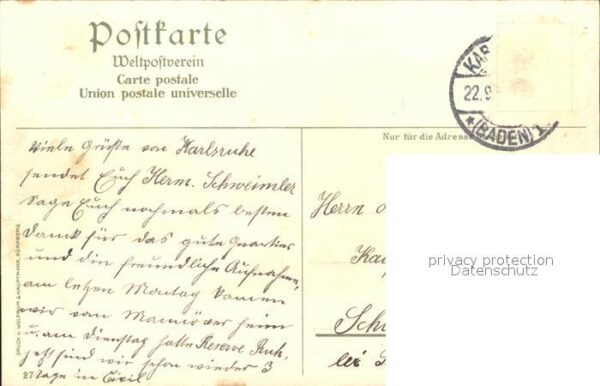 Postkarte
Weltpostverein
Carte postale
Union postale universelle
KAR
22.9
*(BADEN) 1.
Nur für die Adresse
Viele Grüße von Karlsruhe
sendet Euch Herm. Schweimler
Sage Euch nochmals besten
Dank für das gute Quartier
und die freundliche Aufnahme,
am letzen Montag kamen
wir vom Manöver heim
u. am Dienstag hatte Reserve Ruh.
jetzt sind wir schon wieder 3
Tage in Civil
Herrn
Schw
bei
privacy protection
Datenschutz
DRUCK V. WOLFRUM & HAUPTMANN, NÜRNBERG